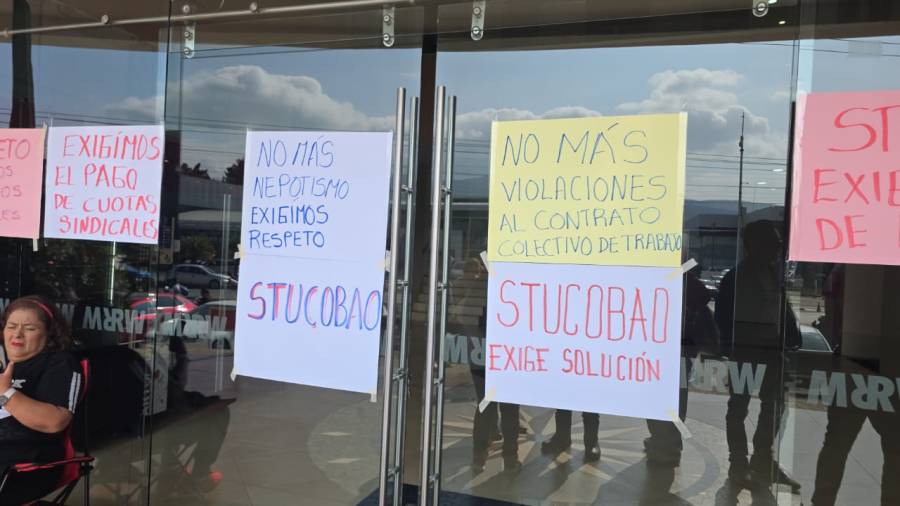 ETO
OS
OS
ALES
EXIGÍMOS
EL PAGO
DE CUOTAS
SINDICALES
NO MÁS
NEPOTISMO
EXIGÍMOS
RESPETO
STUCOBAO
NO MÁS
VIOLACIONES
AL CONTRATO
COLECTIVO DE TRABAJO
STUCOBAO
EXIGE SOLUCIÓN
STU
EXIG
DE